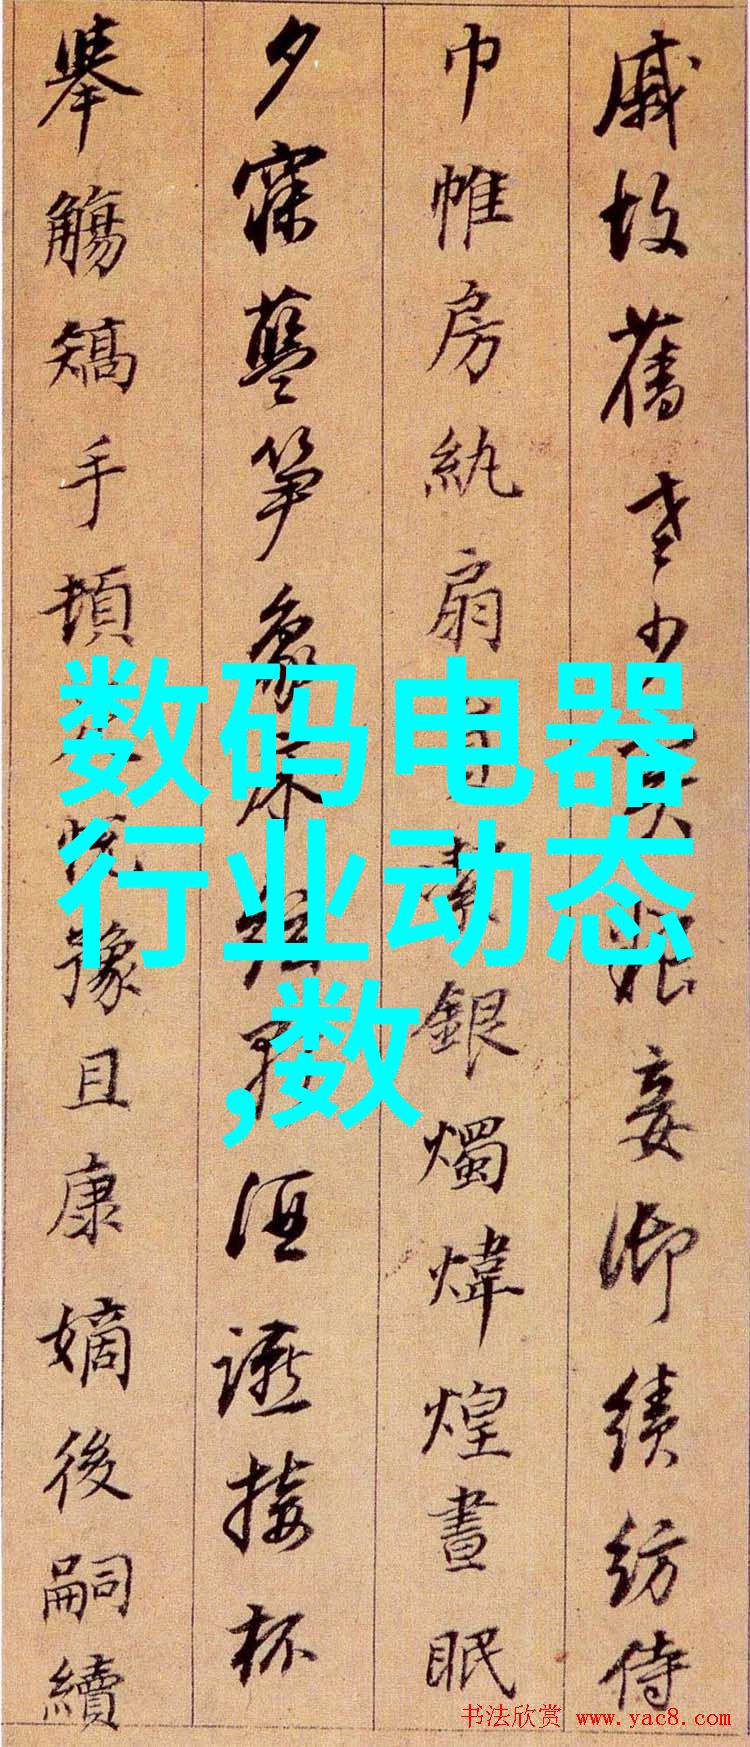 戚故舊老少異粮妾御績紡侍
巾帷房紈扇圓潔銀燭煒煌晝眠
夕寐藍笋象床絃歌酒讌接杯
舉觴矯手頓足悅豫且康嫡後嗣續
数码电器
行业动态
,数
书法欣赏 www.yac8.com